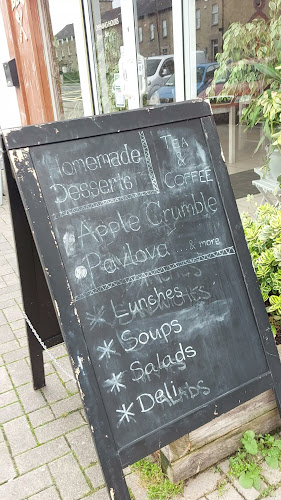 Homemade
Desserts
TEA
&
COFFEE
Apple Crumble
Pavlova ....& more
* Lunches
* Soups
* Salads
* Deli